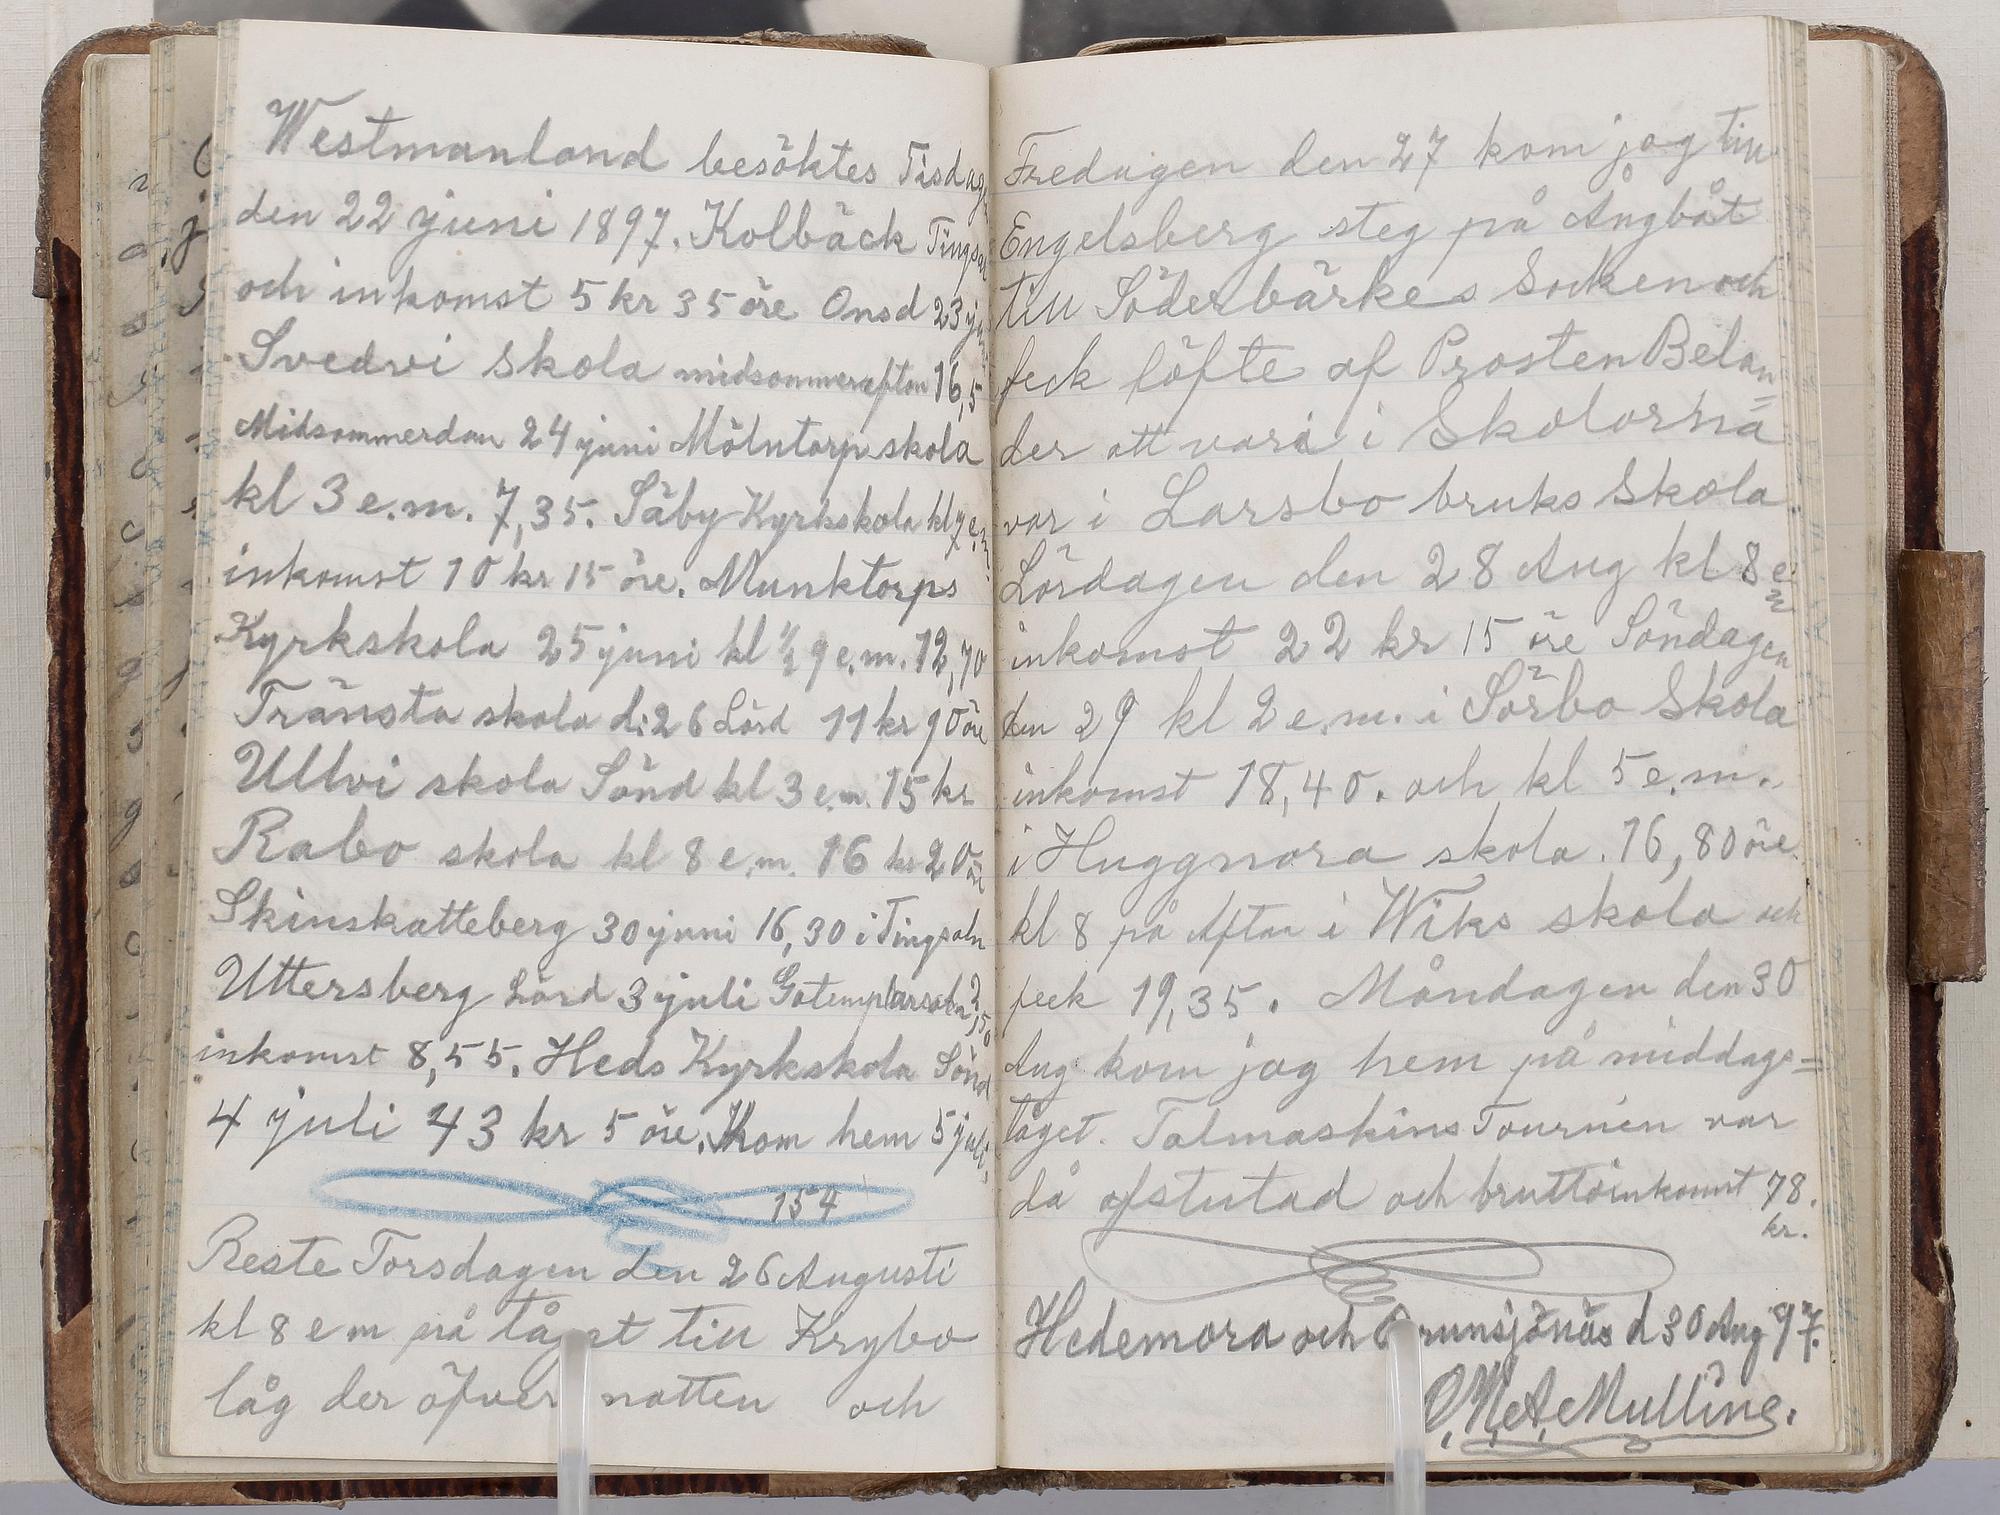 Westmanland besöktes Tisdagen
den 22 juni 1897. Kolbäck Tingsal
och inkomst 5 kr 35 öre Onsd 23 juni
Svedvi skola midsommerafton 16,5
Midsommerdan 24 juni Mölntorp skola
kl 3 e.m. 7,35. Säby Kyrkskola kl 7 e.m.
inkomst 10 kr 15 öre. Munktorps
Kyrkskola 25 juni kl ½ 9 e.m. 12,70
Tränsta skola d: 26 Lörd 11 kr 90 öre
Ullvi skola Sönd kl 3 e.m. 15 kr
Rabo skola kl 8 e.m. 16 kr 20 öre
Skinskatteberg 30 juni 16,30 i Tingsaln
Uttersberg Lörd 3 juli Gotemplarsaln 2,50
inkomst 8,55. Heds Kyrkskola Sönd
4 juli 43 kr 5 öre. Kom hem 5 juli,
154
Reste Torsdagen den 26 Augusti
kl 8 e m på tåget till Krylbo
låg der öfver natten och
Fredagen den 27 kom jag till
Engelsberg steg på Ångbåt
till Söderbärkes Socken och
feck löfte af Prosten Belan=
der att vara i Skolorna
var i Larsbo bruks Skola
Lördagen den 28 Aug kl 8 e.m
inkomst 22 kr 15 öre Söndagen
den 29 kl 2 e.m. i Sörbo Skola
inkomst 18,40. och kl 5 e.m.
i Huggnora skola. 16,80 öre.
kl 8 på Aftan i Wiks skola och
feck 19,35. Måndagen den 30
Aug kom jag hem på middags=
tåget. Talmaskins Tournén var
då afslutad och bruttoinkomst 78.
kr.
Hedemora och Brunsjönäs d 30 Aug 97.
O. N. A. Mulline.